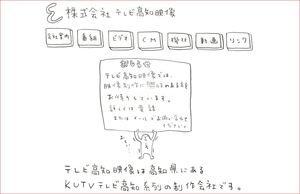 株式会社テレビ高知映像
会社案内 番組 ビデオ CM 機材 動画 リンク
おしらせ
テレビ高知映像では、
映像制作に興味のある方を
お待ちしています。
詳しくは電話
またはメールでお問い合わせ
ください。
テレビ高知映像は高知県にある
KUTVテレビ高知系列の制作会社です。